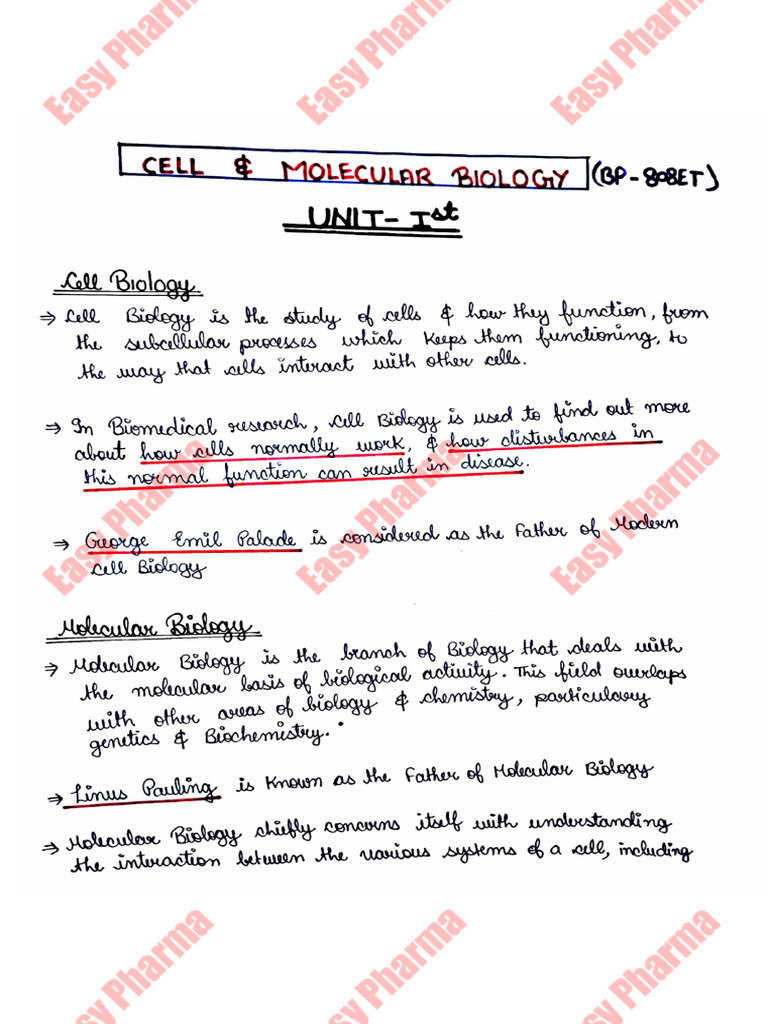 Easy Pharma Easy Pharma Easy Pharma
CELL & MOLECULAR BIOLOGY (BP-808ET)
UNIT- Ist
Cell Biology
⇒ Cell Biology is the study of cells & how they function, from
the subcellular processes which keeps them functioning, to
the way that cells interact with other cells.
⇒ In Biomedical research, cell Biology is used to find out more
about how cells normally work, & how disturbances in
this normal function can result in disease.
Easy Pharma Easy Pharma Easy Pharma
⇒ George Emil Palade is considered as the Father of Modern
Cell Biology
Molecular Biology
⇒ Molecular Biology is the branch of Biology that deals with
the molecular basis of biological activity. This field overlaps
with other areas of biology & chemistry, particulary
genetics & Biochemistry.
⇒ Linus Pauling is known as the Father of Molecular Biology
⇒ Molecular Biology chiefly concerns itself with understanding
the interaction between the various systems of a cell, including
Easy Pharma Easy Pharma Easy Pharma